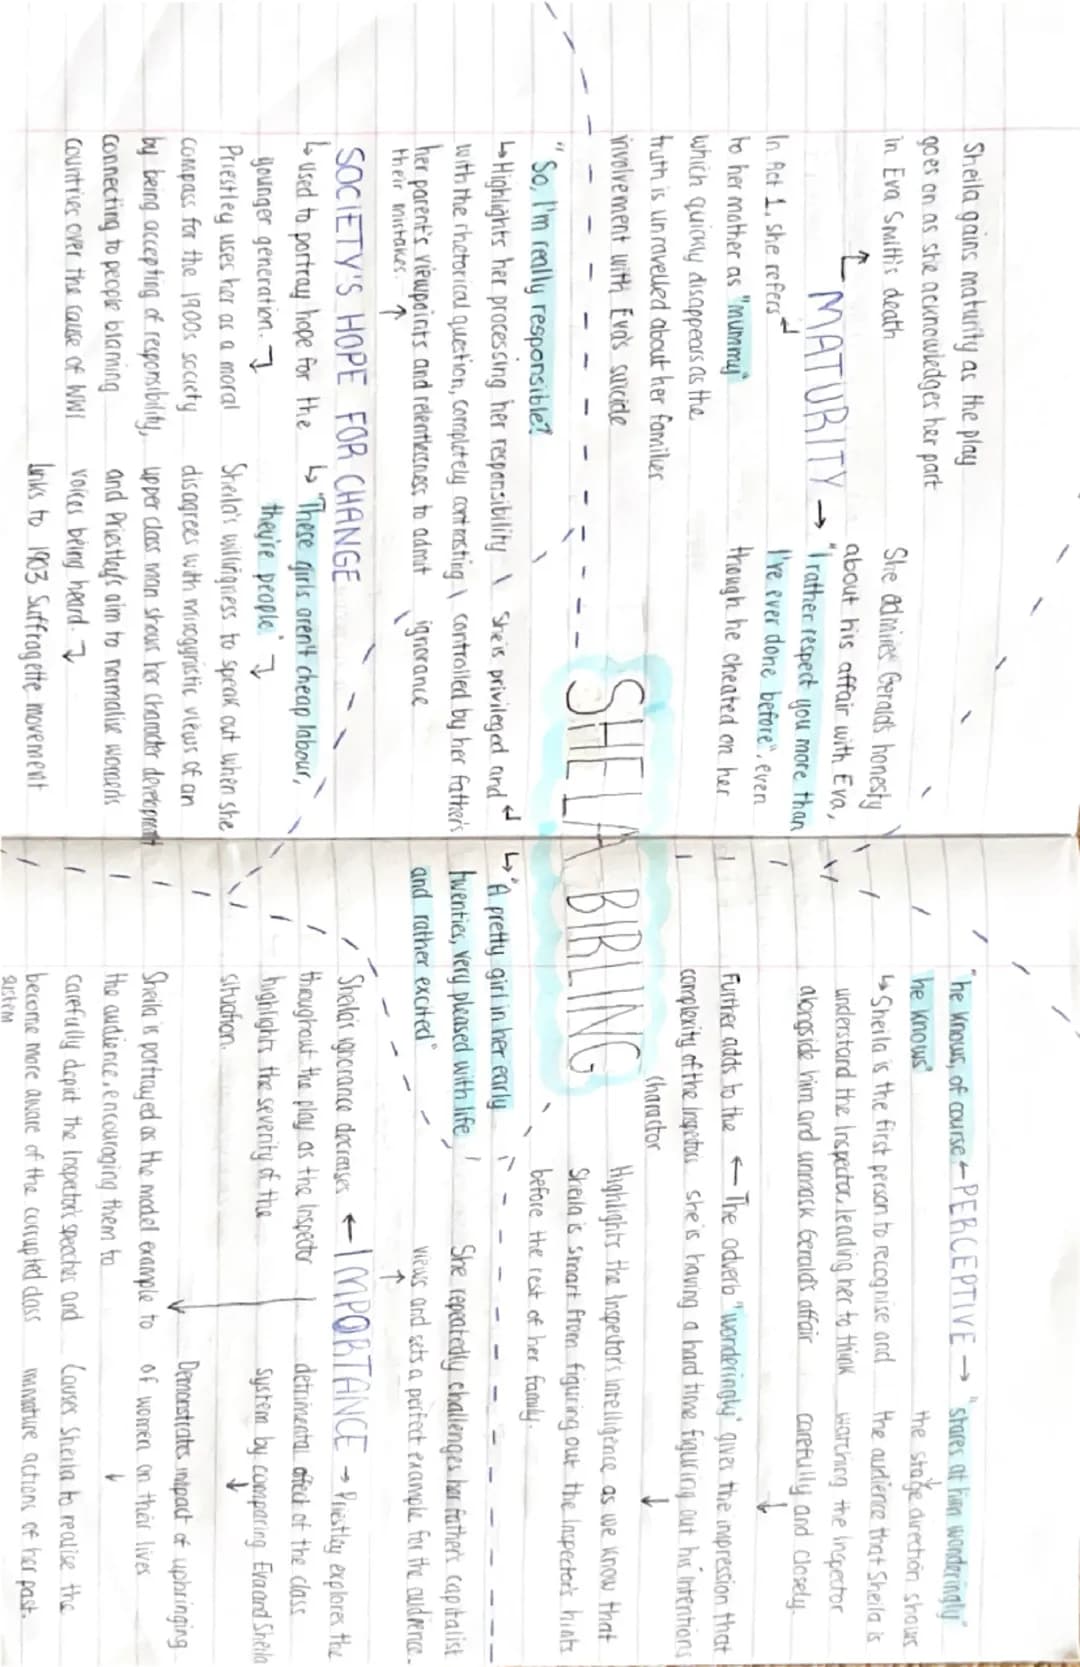 SHEILA BIRLING
Sheila gains maturity as the play
goes on as she acknowledges her part
in Eva Smith's death
MATURITY →
In Act 1, she refers
to her mother as "mummy"
which quickly disappears as the
truth is unravelled about her families
involvement with Eva's suicide
She admires Gerald's honesty
about his affair with Eva,
"I rather respect you more than
I've ever done before", even
though he cheated on her
"So, I'm really responsible?"
↳ Highlights her processing her responsibility
with the rhetorical question, completely contrasting
her parent's viewpoints and relentlessness to admit
their mistakes.
She is privileged and
controlled by her father's
ignorance
↳ "A pretty girl in her early
twenties, very pleased with life
and rather excited"
SOCIETY'S HOPE FOR CHANGE
↳ used to portray hope for the
younger generation.
Priestley uses her as a moral
compass for the 1900s society
by being accepting of responsibility,
connecting to people blaming
countries over the cause of WW1
↳ "These girls aren't cheap labour,
they're people"
Sheila's willingness to speak out when she
disagrees with misogynistic views of an
upper class man shows her character development
and Priestley's aim to normalise women's
voices being heard.
Links to 1903 Suffragette movement
"he knows, of course ← PERCEPTIVE → "stares at him wonderingly"
he knows"
↳ Sheila is the first person to recognise and
understand the Inspector, leading her to think
alongside him and unmask Gerald's affair
the stage direction shows
the audience that Sheila is
watching the inspector
carefully and closely.
Further adds to the ← The adverb "wonderingly" gives the impression that
complexity of the Inspectors she is having a hard time figuring out his intentions
charactor
Highlights the Inspector's intelligence as we know that
Sheila is smart from figuring out the Inspector's hints
before the rest of her family.
She repeatedly challenges her father's capitalist
views and sets a perfect example for the audience.
Sheila's ignorance decreases ← IMPORTANCE → Priestley explores the
throughout the play as the Inspector
highlights the severity of the
situation.
detrimental affect of the class
system by comparing Eva and Sheila
Demonstrates impact of upbringing
of women on their lives
Sheila is portrayed as the model example to
the audience, encouraging them to
carefully depict the Inspector's speeches and
become more aware of the corrupted class
system
Causes Sheila to realise the
immature actions of her past.